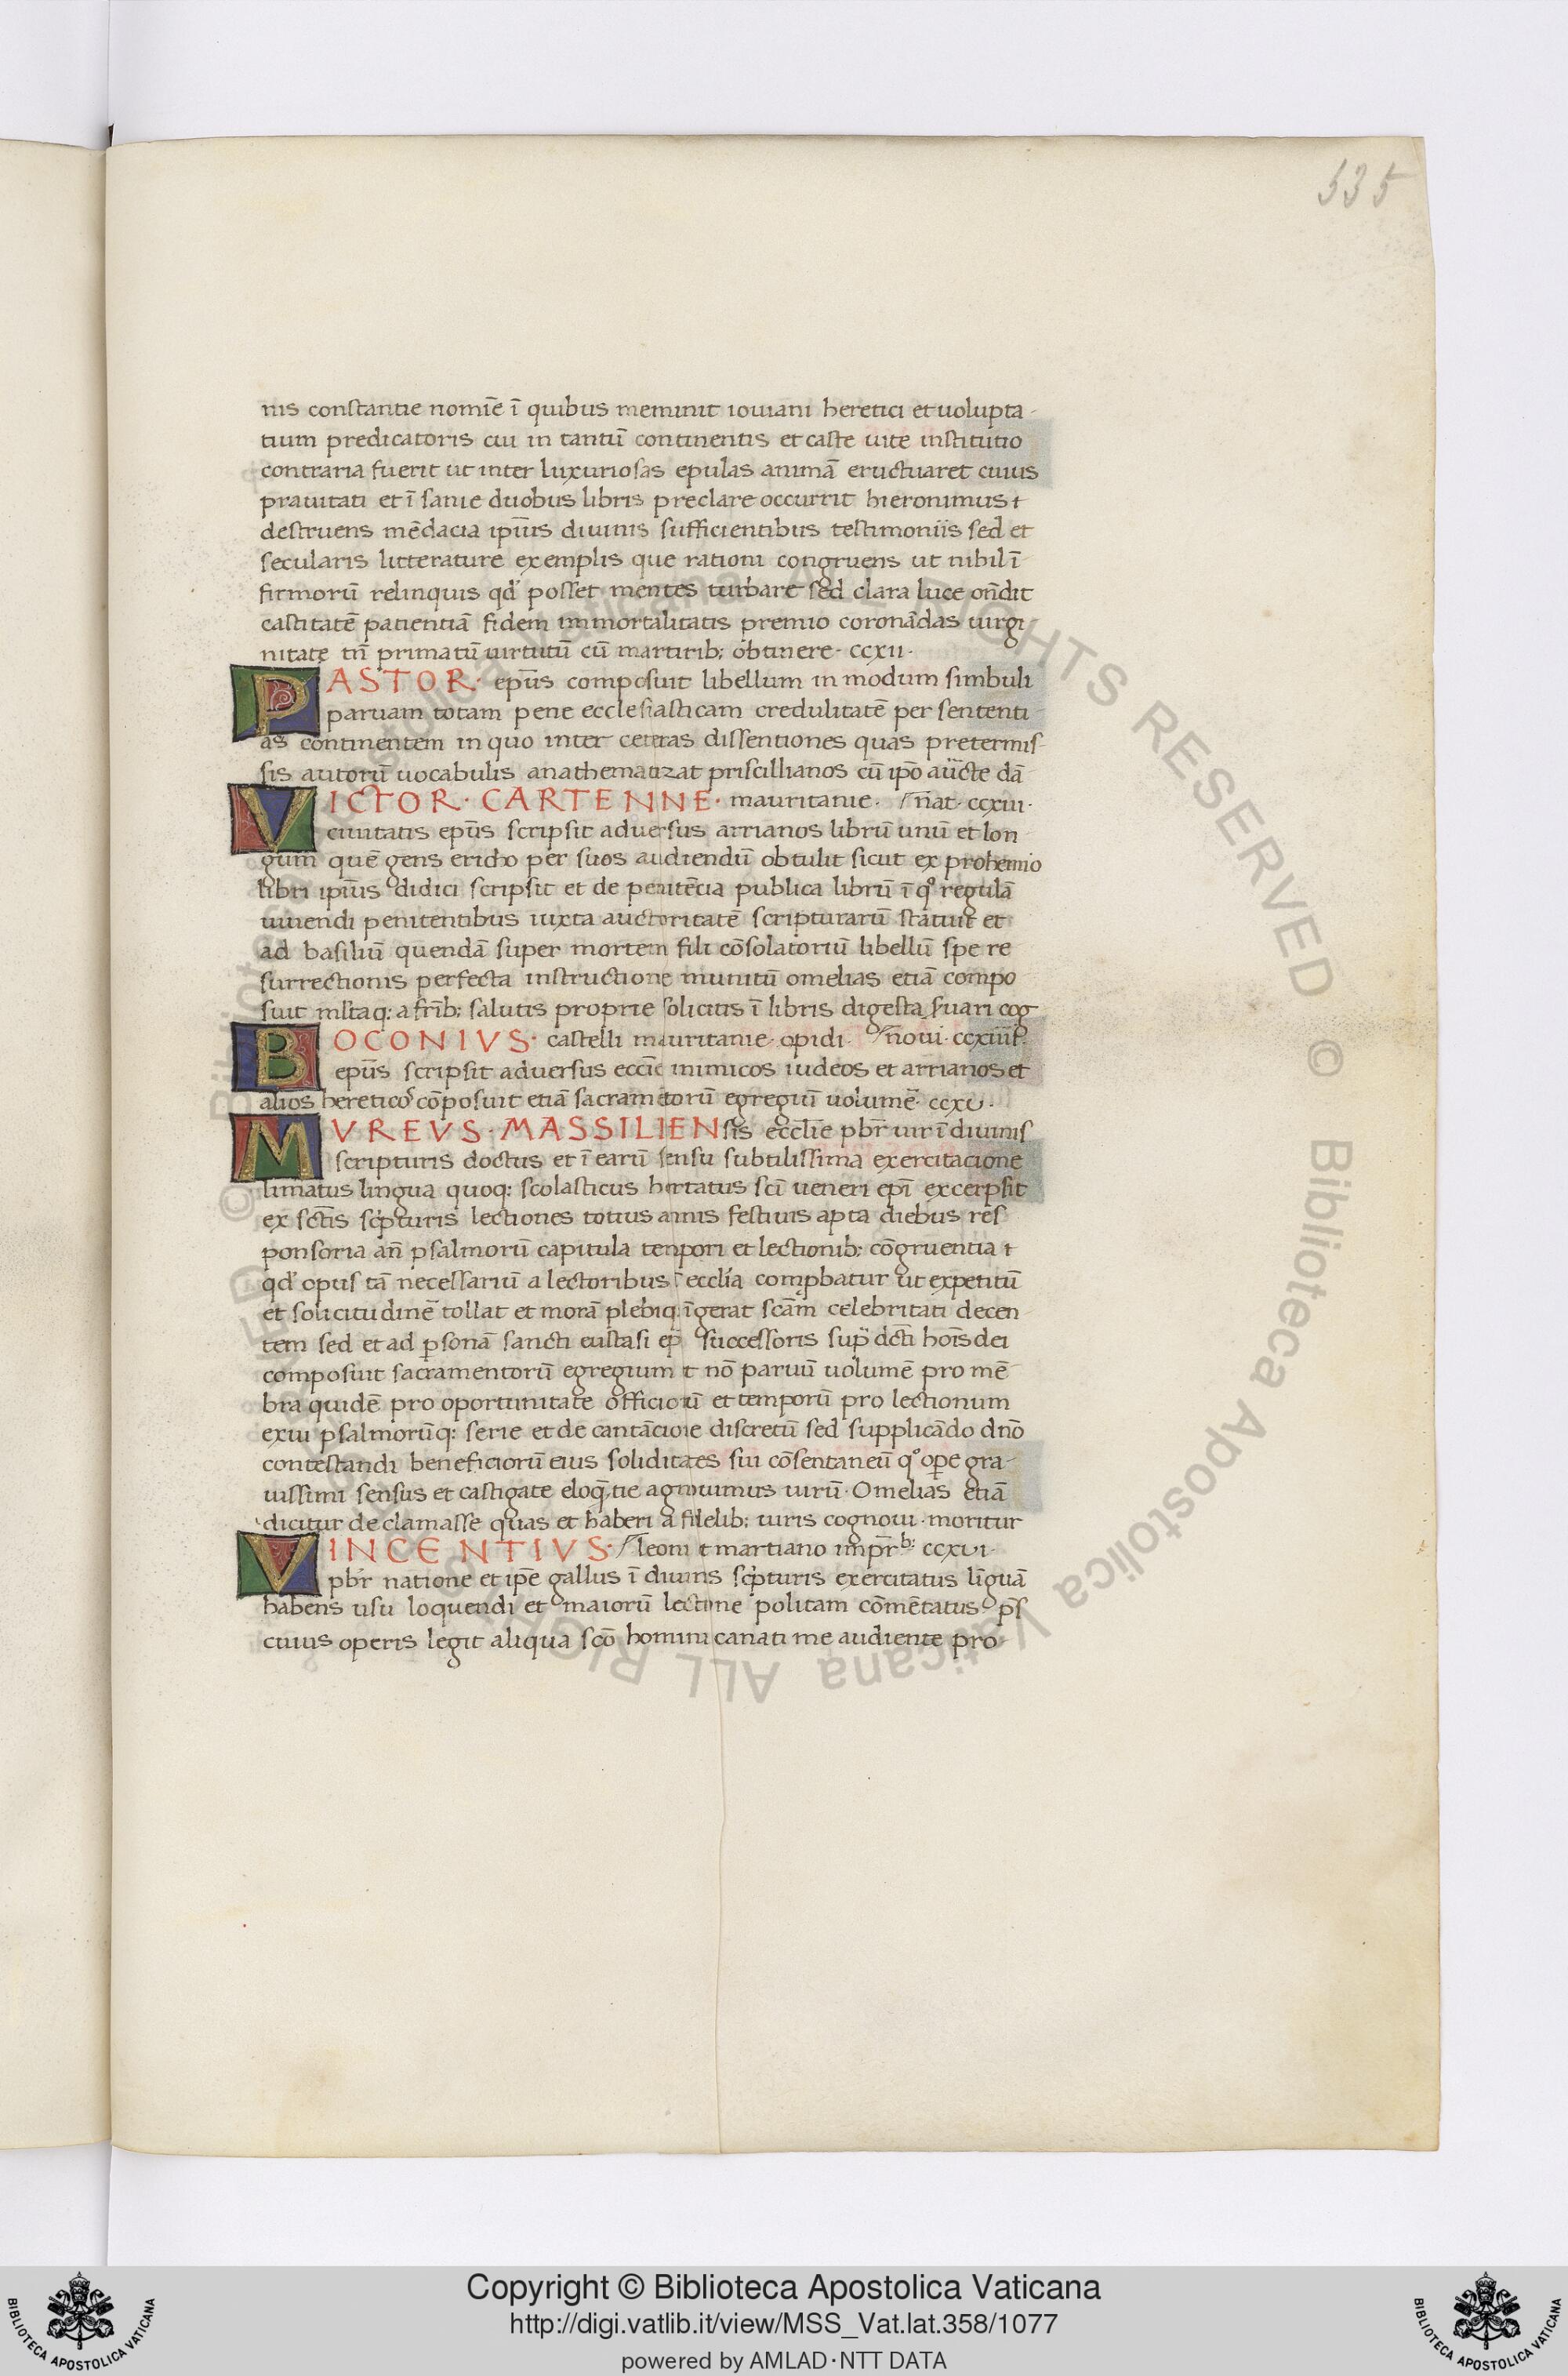 535
nis constantie nomīe ī quibus meminit iouiani heretici et uolupta-
tium predicatoris cui in tantū continentis et caste uite institutio
contraria fuerit ut inter luxuriosas epulas animā eructuaret cuius
prauitati et ī sanie duobus libris preclare occurrit hieronimus ⁊
destruens mēdacia ipīus diuinis sufficientibus testimoniis sed et
secularis litterature exemplis que rationi congruens ut nihil ī
firmorū relinquis qd' posset mentes turbare sed clara luce on̄dit
castitatē patientiā fidem immortalitatis premio coronādas uirgi
nitate tn̄ primatū uirtutū cū martirib; obtinere· ccxii·
PASTOR· ep̄us composuit libellum in modum simbuli
paruam totam pene ecclesiasticam credulitatē per sententi
as continentem in quo inter ceteras dissentiones quas pretermis-
sis autorū uocabulis anathematizat priscillianos cū ip̄o auc̄te dā
VICTOR· CARTENNE· mauritanie· n̄at· ccxiii·
ciuitatis ep̄us scripsit aduersus arrianos librū unū et lon
gum quē gens ericho per suos audiendū obtulit sicut ex prohemio
libri ipīus didici scripsit et de penitēcia publica librū ī q° regulā
uiuendi penitentibus iuxta auctoritatē scripturarū statuit et
ad basiliū quendā super mortem fili cōsolatoriū libellū spe re
surrectionis perfecta instructione munitū omelias etiā compo
suit ml̄taq; a fr̄ib; salutis proprie solicitis ī libris digesta s̄uari cog
BOCONIVS· castelli mauritanie· opidi· n̄oui· ccxiiii°·
ep̄us scripsit aduersus ecc̄ie inimicos iudeos et arrianos et
alios hereticos cōposuit etiā sacramētorū egregiū uolumē· ccxu·
MVREVS· MASSILIENsis eccl̄ie pb̄r uir ī diuinis
scripturis doctus et ī earū sensu subtilissima exercitacione
limatus lingua quoq; scolasticus hortatus sc̄i ueneri ep̄i excerpsit
ex sct̄is sc̄pturis lectiones totius annis festiuis apta diebus res
ponsoria an̄ psalmorū capitula tenpori et lectionib; cōgruentia ⁊
qd' opus tā necessariū a lectoribus ī eccl̄ia comꝓbatur ut expetitū
et solicitudinē tollat et morā plebiq; īgerat scām celebritati decen
tem sed et ad ꝑsonā sancti eustasi ep̄ successoris sup̄ dct̄i hoīs dei
composuit sacramentorū egregium ⁊ nō paruū uolumē pro mē
bra quidē pro oportunitate officiorū et temporū pro lectionum
exui psalmorūq; serie et de cantācione discretū sed supplicādo dn̄o
contestandi beneficiorū eius soliditates sui cōsentaneū q° oꝑe gra-
uissimi sensus et castigate eloq̄tie agnouimus uirū· Omelias etiā
dicitur declamasse quas et haberi a fidelib; uiris cognoui· moritur
VINCENTIVS· leoni ⁊ martiano imp̄rb; ccxui·
pb̄r natione et ip̄e gallus ī diuinis sc̄pturis exercitatus līguā
habens usu loquendi et maiorū lectione politam cōmētatus· p̄s
cuius operis legit aliqua scō homini canati me audiente pro-
© Biblioteca Apostolica Vaticana ALL RIGHTS RESERVED © Biblioteca Apostolica Vaticana ALL RIGHTS RESERVED
Copyright © Biblioteca Apostolica Vaticana
http://digi.vatlib.it/view/MSS_Vat.lat.358/1077
powered by AMLAD·NTT DATA
BIBLIOTECA APOSTOLICA VATICANA
BIBLIOTECA APOSTOLICA VATICANA